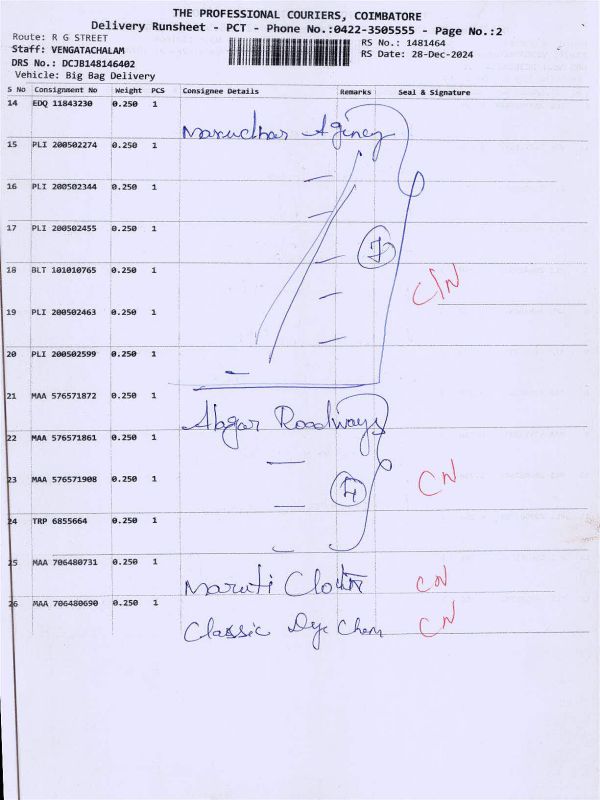 THE PROFESSIONAL COURIERS, COIMBATORE
Delivery Runsheet - PCT - Phone No.:0422-3505555 - Page No.:2
Route: R G STREET
RS No.: 1481464
Staff: VENGATACHALAM
RS Date: 28-Dec-2024
DRS No.: DCJB148146402
Vehicle: Big Bag Delivery
S No Consignment No Weight PCS Consignee Details Remarks Seal & Signature
14 EDQ 11843230 0.250 1
Marudhar Agency
15 PLI 200502274 0.250 1
16 PLI 200502344 0.250 1
17 PLI 200502455 0.250 1
7
18 BLT 101010765 0.250 1
C/N
19 PLI 200502463 0.250 1
20 PLI 200502599 0.250 1
21 MAA 576571872 0.250 1
Abgar Roadways
22 MAA 576571861 0.250 1
23 MAA 576571908 0.250 1
4 CN
24 TRP 6855664 0.250 1
25 MAA 706480731 0.250 1
Maruti CN
26 MAA 706480690 0.250 1
Classic Dye Chem CN